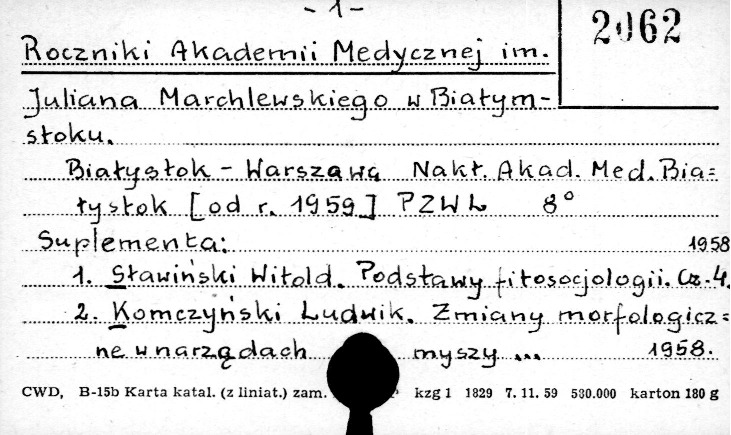 - 1 -
2062
Roczniki Akademii Medycznej im.
Juliana Marchlewskiego w Białym-
stoku.
Białystok - Warszawa Nakł. Akad. Med. Bia=
łystok [od r. 1959] PZWL 8°
Suplementa: 1958
1. Sławiński Witold. Podstawy fitosocjologii. Cz. 4.
2. Komczyński Ludwik. Zmiany morfologicz=
ne w narządach myszy ... 1958.
CWD, B-15b Karta katal. (z liniat.) zam. kzg 1 1829 7. 11. 59 530.000 karton 180 g